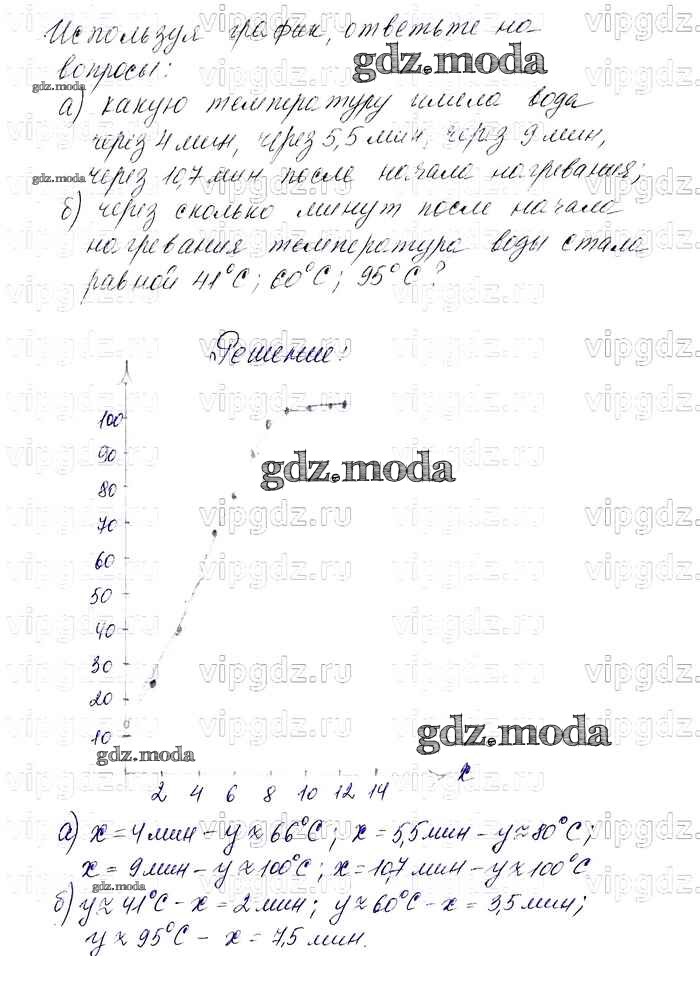 Используя график, ответьте на
вопросы:
а) какую температуру имела вода
через 4 мин, через 5,5 мин, через 9 мин,
через 10,7 мин после начала нагревания;
б) через сколько минут после начала
нагревания температура воды стала
равной 41°С; 60°С; 95°С?
Решение:
100
90
80
70
60
50
40
30
20
10
2 4 6 8 10 12 14 x
а) x = 4 мин – y ≈ 66°С; x = 5,5 мин – y ≈ 80°С;
x = 9 мин – y ≈ 100°С; x = 10,7 мин – y ≈ 100°С
б) y ≈ 41°С – x = 2 мин; y ≈ 60°С – x = 3,5 мин;
y ≈ 95°С – x = 7,5 мин.
gdz.moda
gdz.moda
gdz.moda
gdz.moda
gdz.moda
gdz.moda
gdz.moda
vipgdz.ru